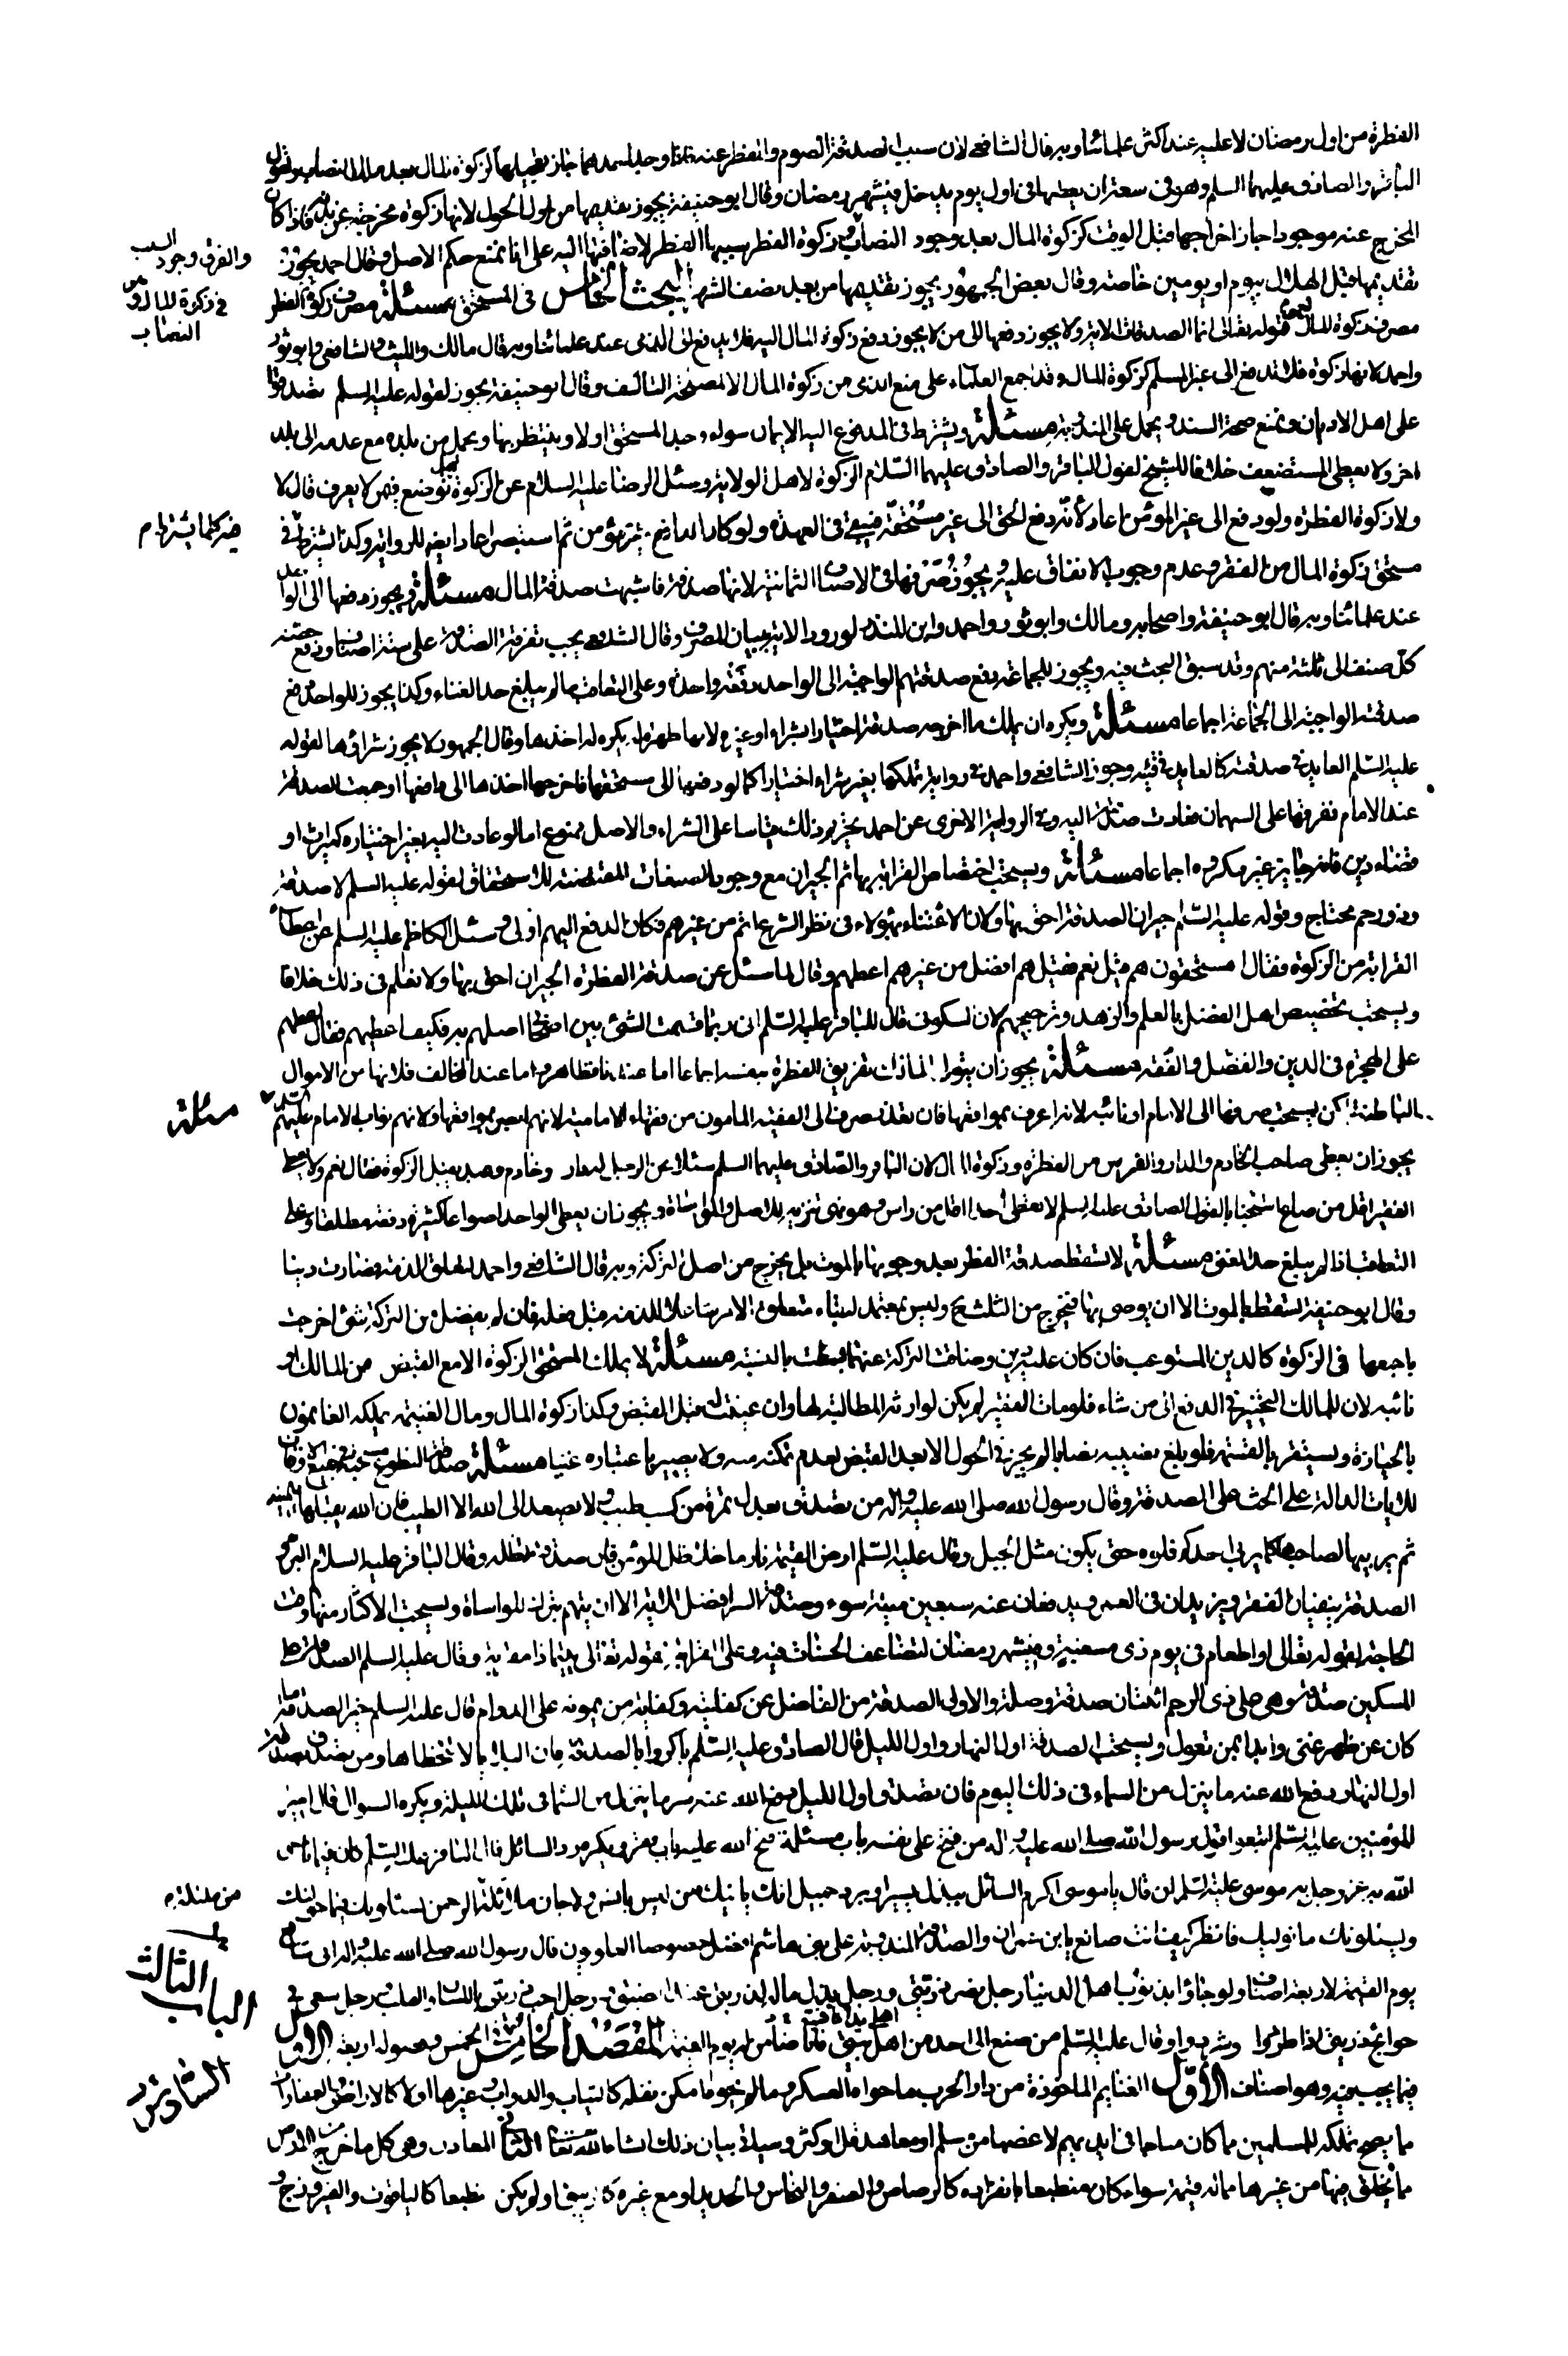 الفطرة من اول رمضان لا عليه عند اكثر علمائنا وبه قال الشافعى لان سبب الصدقة الصوم والفطر عنه فاذا وجد احدهما جاز تعجيلها كزكوة المال بعد ملك النصاب ولقول
الباقر والصادق عليهما السلم وهو فى سعة ان يعطيها فى اول يوم يدخل فى شهر رمضان وقال ابو حنيفة يجوز تقديمها من اول الحول لانها زكوة مخرجة عن بدنه فاذا كان
المخرج عنه موجودا جاز اخراجها قبل الوقت كزكوة المال بعد وجود النصاب و زكوة الفطر سببها الفطر لاضافتها اليه على انا نمنع حكم الاصل وقال احمد يجوز
تقديمها قبل الهلال بيوم او يومين خاصة وقال بعض الجمهور يجوز تقديمها من بعد نصف الشهر البحث الخامس فى المستحق مسئلة مصرف زكوة الفطر
مصرف زكوة المال لعموم قوله تعالى انما الصدقات الاية ولا يجوز دفعها الى من لا يجوز دفع زكوة المال اليه فلا يدفع الى الذمى عند علمائنا وبه قال مالك والليث والشافعى وابو ثور
واحمد لانها زكوة فلا تدفع الى غير المسلم كزكوة المال وقد اجمع العلماء على منع الذمى من زكوة المال الا لمصلحة التالف وقال ابو حنيفة يجوز لقوله عليه السلم تصدقوا
على اهل الاديان ونمنع صحة السند و يحمل على المندوبة مسئلة ويشترط فى المدفوع اليه الايمان سواء وجد المستحق اولا وينتظر بها ويحمل من بلده مع عدمه الى بلد
اخر ولا يعطى المستضعف خلافا للشيخ لقول الباقر والصادق عليهما السلام الزكوة لاهل الولاية وسئل الرضا عليه السلام عن الزكوة هل توضع فيمن لا يعرف قال لا
ولا زكوة الفطرة ولو دفع الى غير المؤمن اعاد لأنه دفع الحق الى غير مستحقه فيبقى فى العهدة ولو كان الدافع غير مؤمن ثم استبصر اعاد ايضا للرواية وكذا يشترط فى
مستحق زكوة المال من الفقر وعدم وجوب الانفاق عليه ويجوز صرفها فى الاصناف الثمانية لانها صدقة فاشبهت صدقة المال مسئلة ويجوز دفعها الى الواحد
عند علمائنا وبه قال ابو حنيفة واصحابه ومالك وابو ثور واحمد وابن المنذر لورود الاية ببيان المصرف وقال الشافعى يجب تفرقة الصدقة على ستة اصناف ودفع حصة
كل صنف الى ثلثة منهم وقد سبق البحث فيه ويجوز للجماعة دفع صدقتهم الواجبة الى الواحد دفعة واحدة وعلى التعاقب ما لم يبلغ حد الغناء وكذا يجوز للواحد دفع
صدقته الواجبة الى الجماعة اجماعا مسئلة ويكره ان يملك ما اخرجه صدقة اختيارا بشراء او غيره لانها طهرة له يكره له اخذها وقال الجمهور لا يجوز شراؤها لقوله
عليه السلم العايد فى صدقته كالعايد فى قيئه وجوز الشافعى واحمد فى رواية تملكها بغير شراء اختيارا كما لو دفعها الى مستحقها فاخرجها اخذها الى دافعها او جمعت الصدقة
عند الامام ففرقها على السهمان فعادت صدقته اليه وفى الرواية الاخرى عن احمد يحرم ذلك قياسا على الشراء والاصل ممنوع اما لو عادت اليه بغير اختياره كميراث او
قضاء دين فانه جايز غير مكروه اجماعا مسئلة ويستحب اختصاص القرابة بها ثم الجيران مع وجود الصفات المقتضية للاستحقاق لقوله عليه السلم لا صدقة
وذو رحم محتاج وقوله عليه السلم جيران الصدقة احق بها ولان الاعتناء بهؤلاء فى نظر الشرع اتم من غيرهم فكان الدفع اليهم اولى و سئل الكاظم عليه السلم عن اعطاء
القرابة من الزكوة فقال مستحقون هم قيل نعم قيل هم افضل من غيرهم اعطهم وقال لما سئل عن صدقة الفطرة الجيران احق بها ولا نعلم فى ذلك خلافا
ويستحب تخصيص اهل الفضل بالعلم والزهد وترجيحهم لان السكونى قال للباقر عليه السلم انى ربما قسمت الشئ بين اصحابى اصلهم به فكيف اعطيهم فقال اعطهم
على الهجرة فى الدين والفضل والفقه مسئلة يجوز ان يتولى المالك تفريق الفطرة بنفسه اجماعا اما عندنا فظاهر واما عند المخالف فلانها من الاموال
الباطنة لكن يستحب صرفها الى الامام او نائبه لانه اعرف بمواقعها فان تعذر صرف الى الفقيه المامون من فقهاء الامامية لانهم ابصر بمواقعها ولانهم نواب الامام عليهم السلم
يجوز ان يعطى صاحب الخادم والدار والفرس من الفطرة و زكوة المال لان الباقر والصادق عليهما السلم سئلا عن الرجل له دار وخادم وعبد يقبل الزكوة فقال نعم ولا يعطى
الفقير اقل من صاع استحبابا لقول الصادق عليه السلم لا تعطى احدا اقل من راس وهو نهى تنزيه للاصل والمواساة ويجوز ان يعطى الواحد اصواعا كثيرة دفعة مطلقا وعلى
التعاقب اذا لم يبلغ حد الغنى مسئلة لا تسقط صدقة الفطر بعد وجوبها بالموت بل يخرج من اصل التركة وبه قال الشافعى واحمد لتعلق الذمة فصارت دينا
وقال ابو حنيفة تسقط بالموت الا ان يوصى بها فيخرج من الثلث وليس بمعتمد لبقاء متعلق الامر شاغلا للذمة قبل فعله فان لم يفضل من التركة شئ اخرجت
باجمعها فى الزكوة كالدين المستوعب فان كان عليه دين وضاقت التركة عنهما بسطت بالنسبة مسئلة لا يملك المستحق الزكوة الا مع القبض من المالك او
نائبه لان للمالك التخيير فى الدفع الى من شاء فلو مات الفقير لم يكن لوارثه المطالبة بها وان عينت له قبل القبض وكذا زكوة المال ومال الغنيمة يملكه الغانمون
بالحيازة ويستقر بالقسمة فلو بلغ نصيبه نصابا لم يجز فى الحول الا بعد القبض لعدم تمكنه منه ولا يصير باعتباره غنيا مسئلة صدقة التطوع مستحبة فى جميع الاوقات
للايات الدالة على الحث على الصدقة وقال رسول الله صلى الله عليه واله من تصدق بعدل تمرة من كسب طيب ولا يصعد الى الله الا الطيب فان الله يقبلها بيمينه
ثم يربيها لصاحبها كما يربى احدكم فلوه حتى يكون مثل الجبل وقال عليه السلم ارض القيمة نار ما خلا ظل المؤمن فان صدقته تظله وقال الباقر عليه السلام البر و
الصدقة ينفيان الفقر ويزيدان فى العمر ويدفعان عنه سبعين ميتة سوء وصدقة السر افضل للاية الا ان يتهم بترك المواساة ويستحب الاكثار منها وقت
الحاجة لقوله تعالى او اطعام فى يوم ذى مسغبة وفى شهر رمضان لتضاعف الحسنات فيه وعلى القرابة لقوله تعالى يتيما ذا مقربة وقال عليه السلم الصدقة على
المسكين صدقة وهى على ذى الرحم اثنتان صدقة وصلة والاولى الصدقة من الفاضل عن كفايته وكفاية من يمونه على الدوام قال عليه السلم خير الصدقة ما
كان عن ظهر غنى وابدا بمن تعول ويستحب الصدقة اول النهار واول الليل قال الصادق عليه السلم باكروا بالصدقة فان البلايا لا تتخطاها ومن تصدق بصدقة
اول النهار دفع الله عنه ما ينزل من السماء فى ذلك اليوم فان تصدق اول الليل دفع الله عنه شر ما ينزل من السماء فى تلك الليلة ويكره السوال قال امير
المؤمنين عليه السلم اتبعوا قول رسول الله صلى الله عليه واله من فتح على نفسه باب مسئلة فتح الله عليه باب فقر ويكره رد السائل قال الباقر عليه السلم كان فيما ناجى
الله به عز وجل به موسى عليه السلم ان قال يا موسى اكرم السائل ببذل يسير او برد جميل انك ياتيك من ليس بانس ولا جان ملائكة الرحمن يسئلونك فيما خولتك
ويسئلونك مما نولتك فانظر كيف انت صانع يا بن عمران والصدقة المندوبة على بنى هاشم افضل خصوصا العلويون قال رسول الله صلى الله عليه واله انى شافع
يوم القيمة لاربعة اصناف ولو جاؤا بذنوب اهل الدنيا رجل نصر ذريتى ورجل بذل ماله لذريتى عند الضيق و رجل احب ذريتى باللسان والقلب ورجل سعى فى
حوائج ذريتى اذا طردوا وشردوا وقال عليه السلم من صنع الى احد من اهل بيتى يدا كافيته يوم القيمة المقصد الخامس فى الخمس وفصوله اربعة الاول
فيما يجب فيه وهو اصناف الاول الغنايم الماخوذة من دار الحرب ما حواها العسكر وما لم يحوه ما امكن نقله كالثياب والدواب وغيرها اولا كالاراضى والعقارات
مما يصح تملكه للمسلمين مما كان مباحا فى ايديهم لا غصبا من مسلم او معاهد قل او كثر وسياتى بيان ذلك انشاء الله تعالى الثانى المعادن وهى كل ما خرج من الارض
مما يخلق فيها من غيرها مما له قيمة سواء كان منطبعا بانفراده كالرصاص والصفر والنحاس والحديد او مع غيره كالزيبق او لم يكن منطبعا كالياقوت والفيروزج و
والفرق وجود السبب
فى زكوة المال وهو
النصاب
فيه كلما يشترط م
مسئلة
من مسئلة
الباب الثالث
السادس